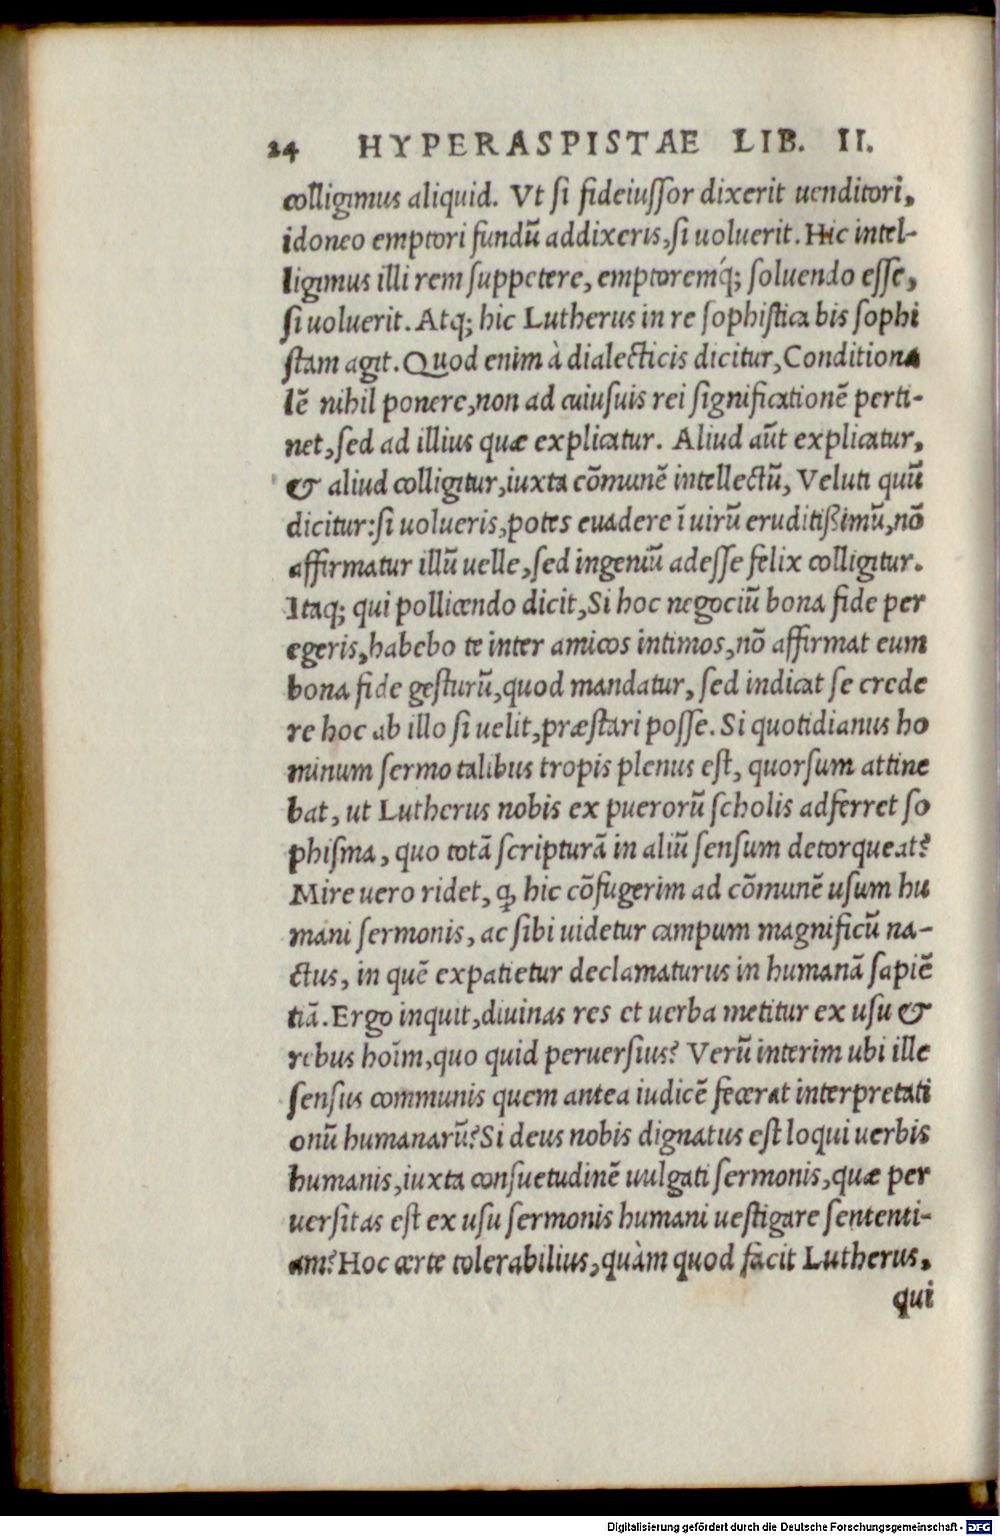 24 HYPERASPISTAE LIB. II.
colligimus aliquid. Vt ſi fideiuſſor dixerit uenditori,
idoneo emptori fundū addixeris, ſi uoluerit. Hic intel-
ligimus illi rem ſuppetere, emptoremq́; ſoluendo eſſe,
ſi uoluerit. Atq; hic Lutherus in re ſophiſtica bis ſophi
ſtam agit. Quod enim à dialecticis dicitur, Conditiona
lē nihil ponere, non ad cuiuſuis rei ſignificationē perti-
net, ſed ad illius quæ explicatur. Aliud aūt explicatur,
& aliud colligitur, iuxta cōmunē intellectū, Veluti quū
dicitur: ſi uolueris, potes euadere ī uirū eruditiſſimū, nō
affirmatur illū uelle, ſed ingeniū adeſſe felix colligitur.
Itaq; qui pollicendo dicit, Si hoc negociū bona fide per
egeris, habebo te inter amicos intimos, nō affirmat eum
bona fide geſturū, quod mandatur, ſed indicat ſe crede
re hoc ab illo ſi uelit, præſtari poſſe. Si quotidianus ho
minum ſermo talibus tropis plenus eſt, quorſum attine
bat, ut Lutherus nobis ex puerorū ſcholis adferret ſo
phiſma, quo totā ſcripturā in aliū ſenſum detorqueat?
Mire uero ridet, ꝙ hic cōfugerim ad cōmunē uſum hu
mani ſermonis, ac ſibi uidetur campum magnificū na-
ctus, in quē expatietur declamaturus in humanā ſapiē
tiā. Ergo inquit, diuinas res et uerba metitur ex uſu &
rebus hoīm, quo quid peruerſius? Verū interim ubi ille
ſenſus communis quem antea iudicē fecerat interpretati
onū humanarū? Si deus nobis dignatus eſt loqui uerbis
humanis, iuxta conſuetudinē uulgati ſermonis, quæ per
uerſitas eſt ex uſu ſermonis humani ueſtigare ſententi-
am? Hoc certe tolerabilius, quàm quod facit Lutherus,
qui
Digitalisierung gefördert durch die Deutsche Forschungsgemeinschaft - DFG